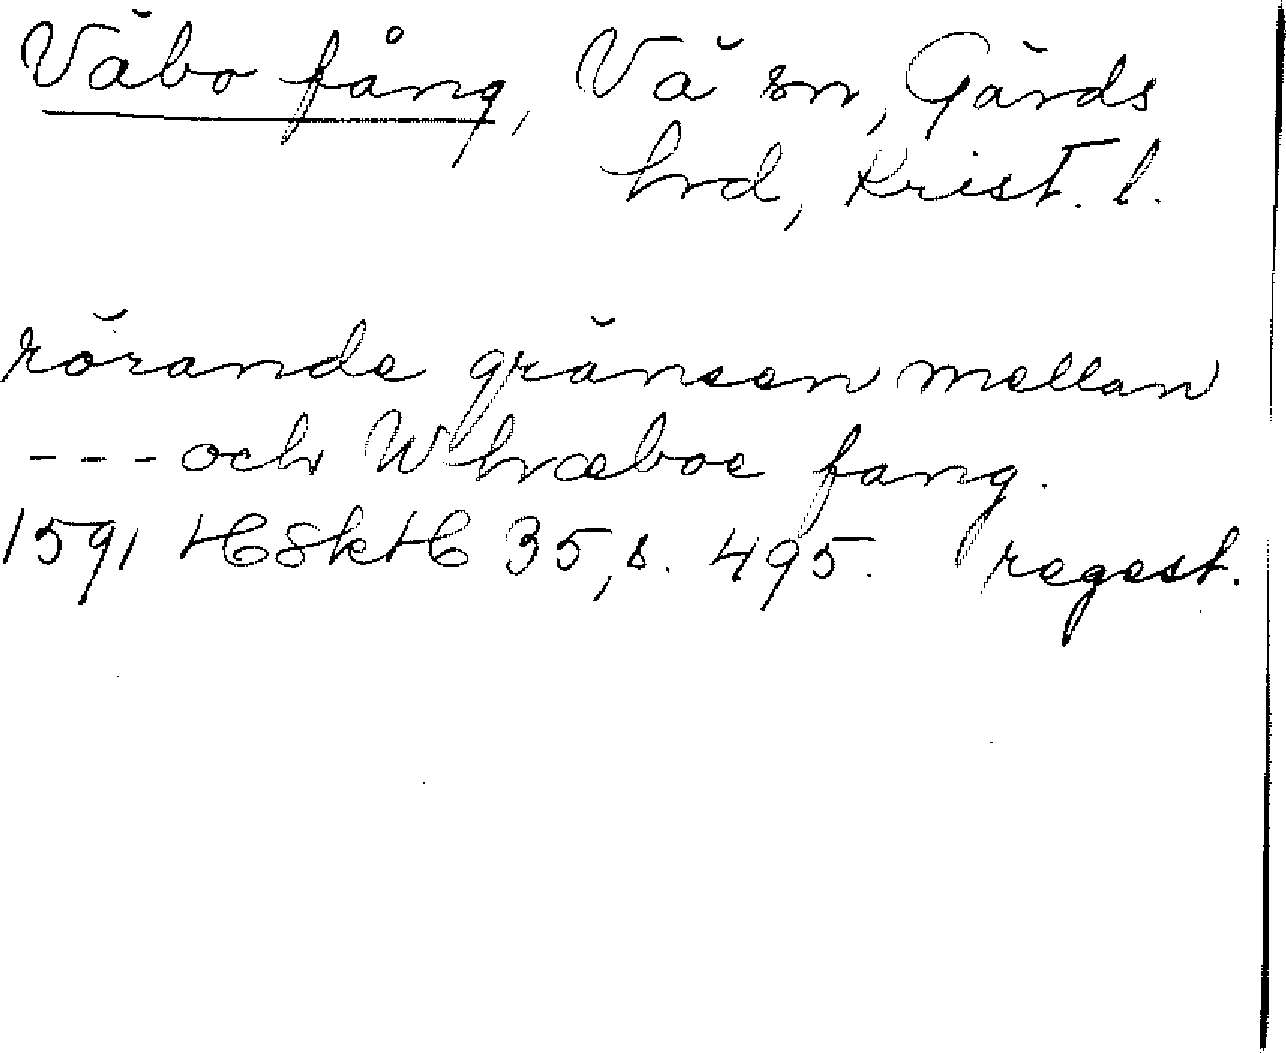 Väbo fång, Vä sn, Gärds
hrd, Krist. l.
rörande gränsen mellan
--- och Whræboe fang.
1591 HSkH 35, s. 495. regest.